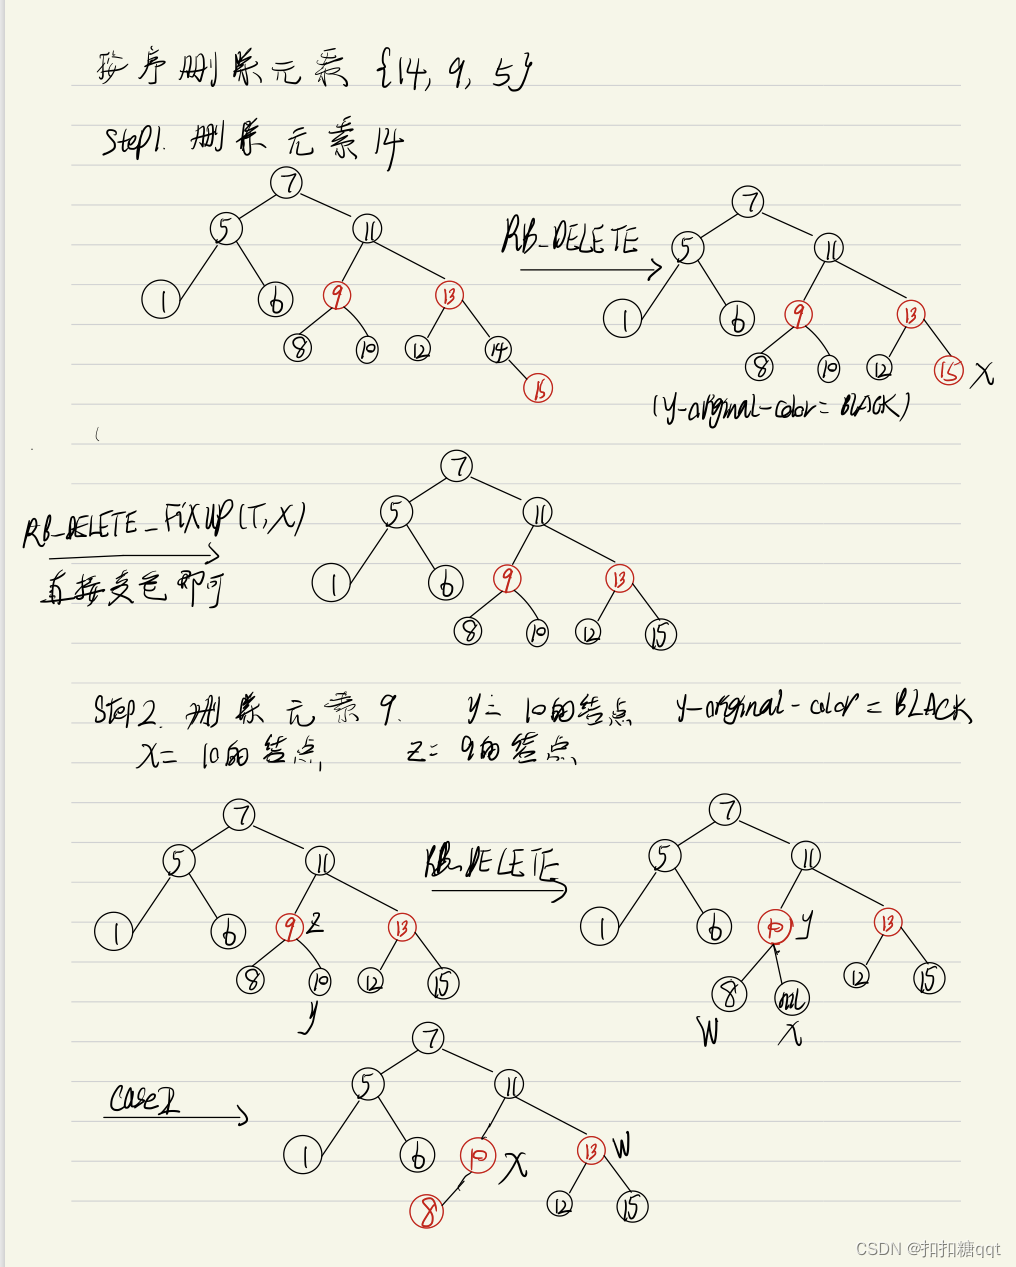 按序删除元素 {14, 9, 5}
Step1. 删除元素 14
7
5 11
1 6 9 13
8 10 12 14
15
RB_DELETE
7
5 11
1 6 9 13
8 10 12 15 X
(y-original-color = BLACK)
RB_DELETE_FIXUP(T,X)
直接变色即可
7
5 11
1 6 9 13
8 10 12 15
Step2. 删除元素 9. y= 10的结点 y-original-color = BLACK
X= 10的结点, Z= 9的结点
7
5 11
1 6 9 Z 13
8 10 12 15
y
RB_DELETE
7
5 11
1 6 10 y 13
8 nil 12 15
W X
case2
7
5 11
1 6 10 X 13 W
8 12 15
CSDN @扣扣糖qqt